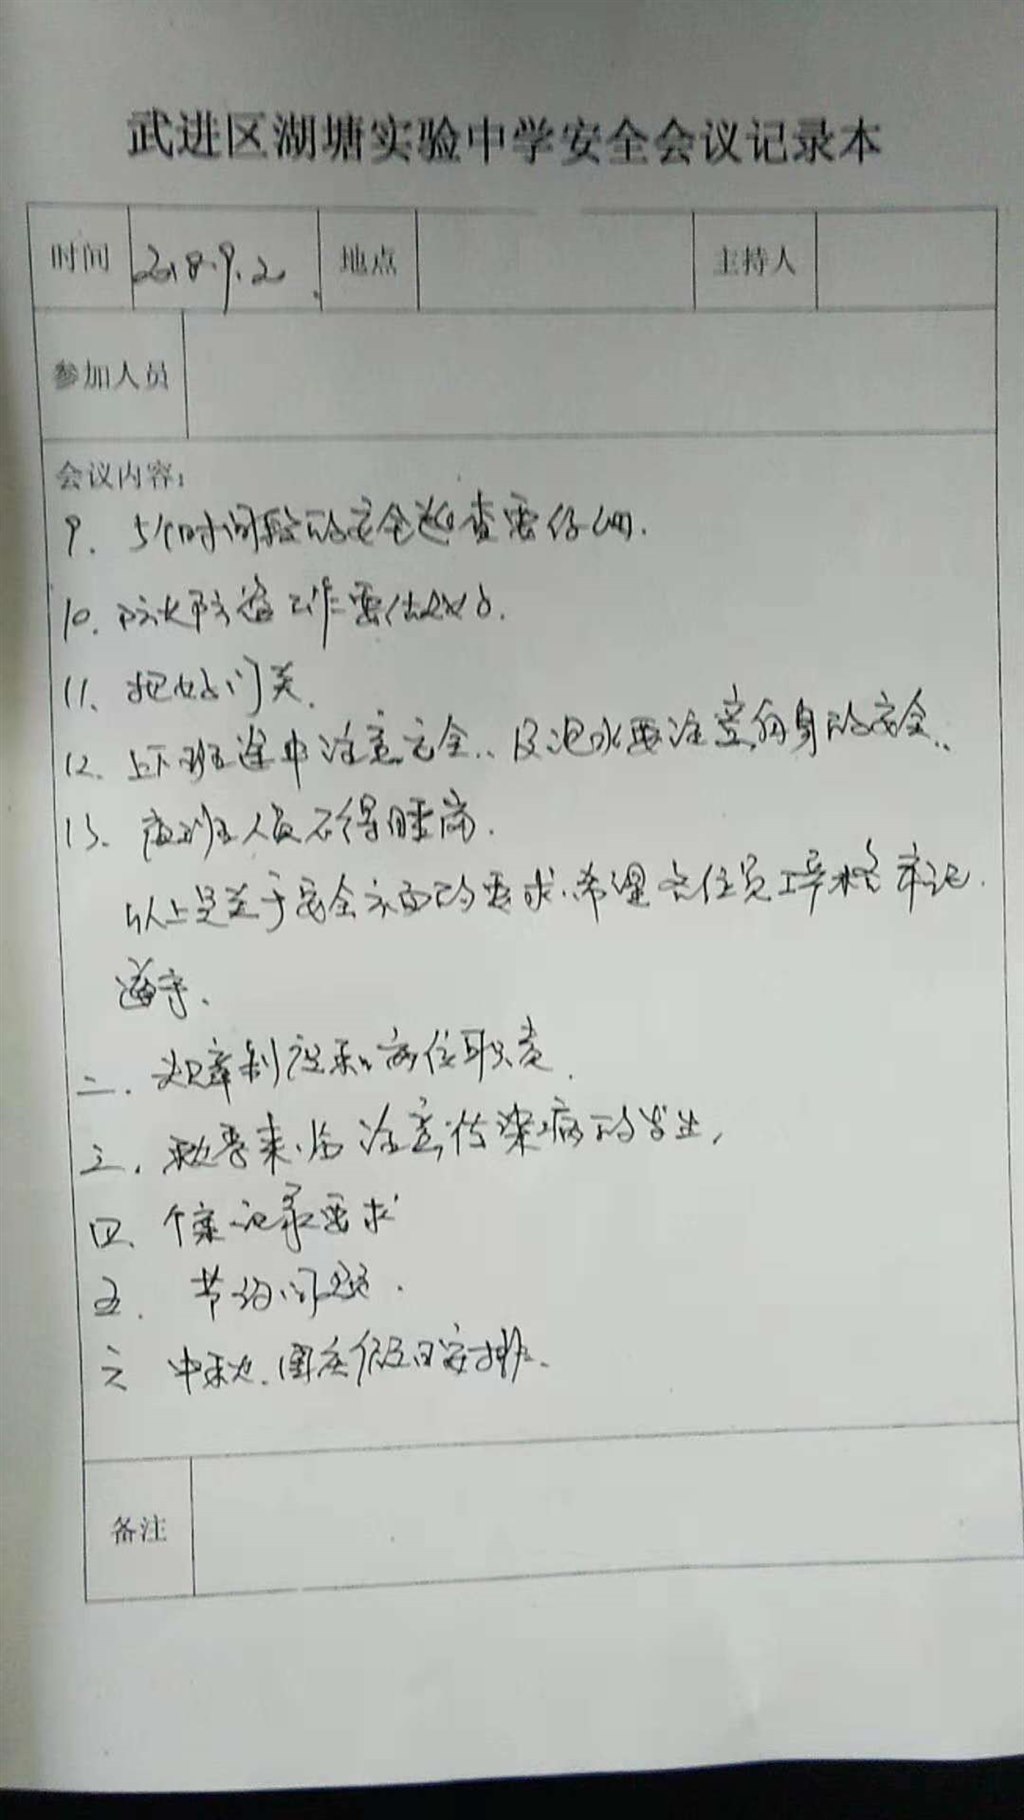 武进区湖塘实验中学安全会议记录本
时间 2018.9.2 地点 主持人
参加人员
会议内容：
9. 5个时间段的安全巡查要仔细.
10. 防火防盗工作要做好.
11、把好门关.
12、上下班途中注意安全、及泡水要注意自身的安全.
13、夜班人员不得睡岗.
以上是关于安全方面的要求.希望各位员工严格牢记
遵守、
二、规章制度和岗位职责.
三、秋季来临注意传染病的发生,
四、个案记录要求
五. 节约问题.
六 中秋.国庆假日安排、
备注